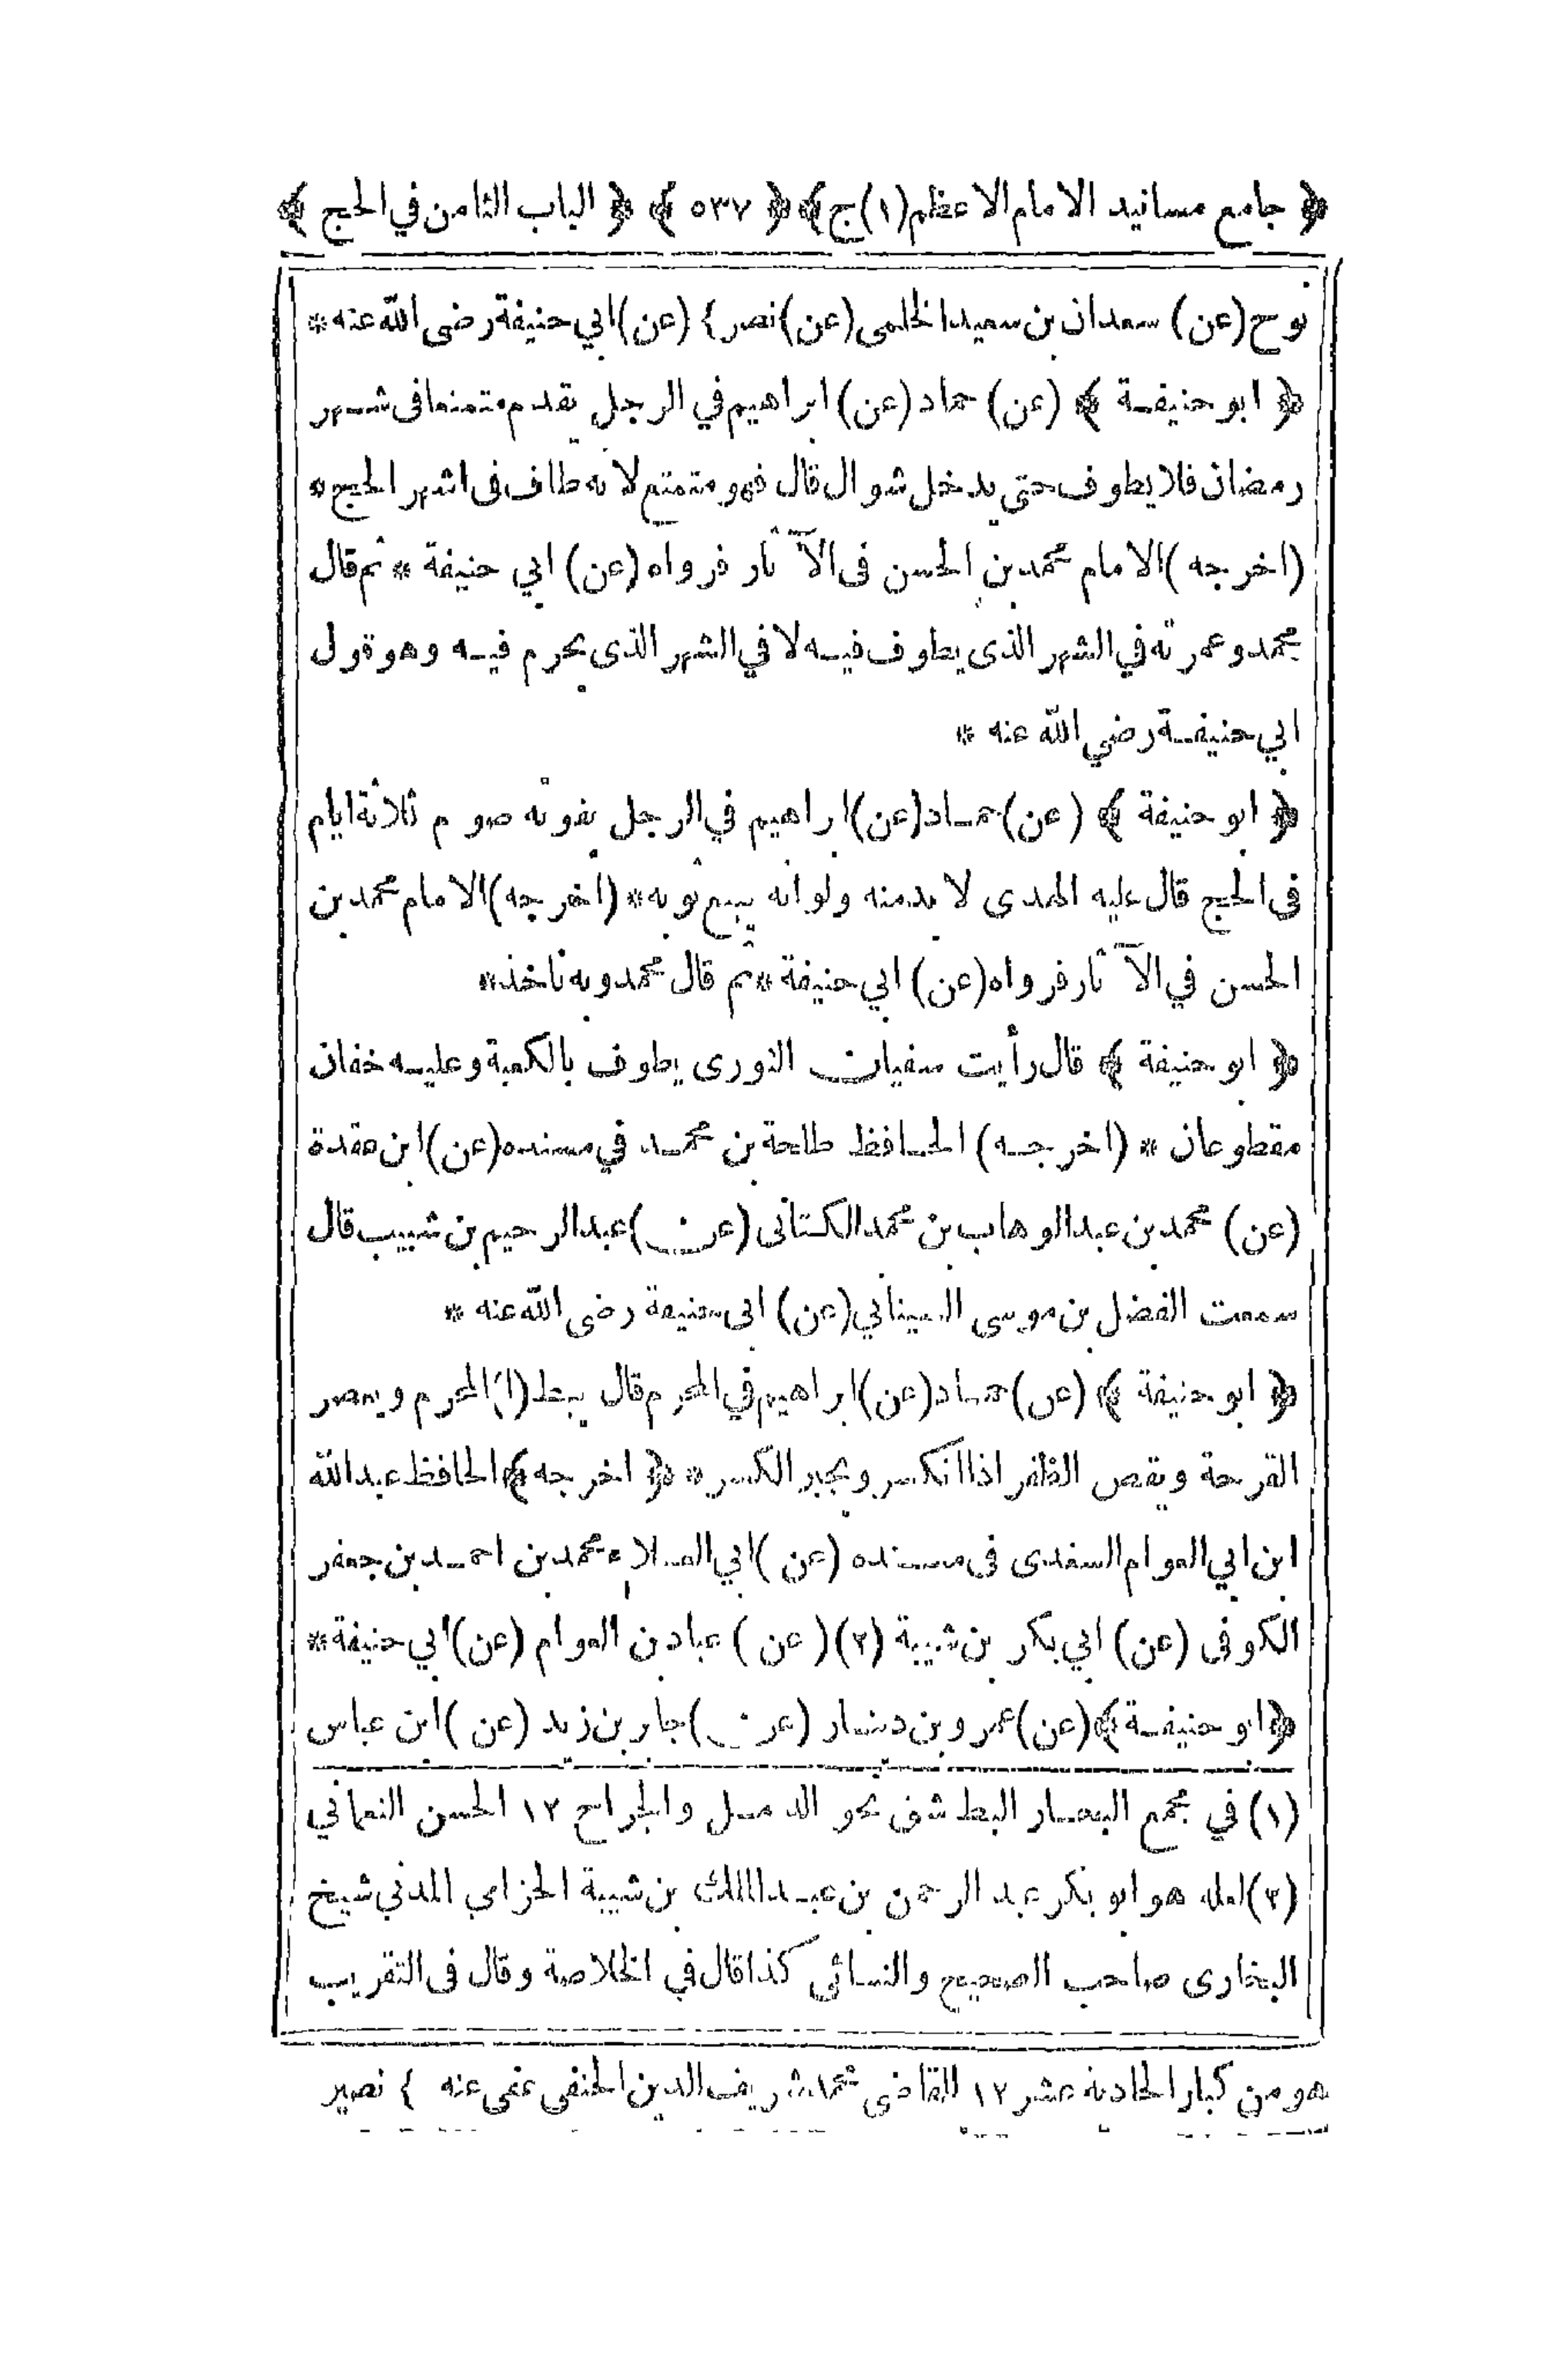 ﴿ جامع مسانيد الامام الاعظم(١)ج﴾ ﴿ ٥٣٧ ﴾ ﴿ الباب الثامن في الحج ﴾
نوح (عن) سعدان بن سعيد الخلمى (عن) نصر} (عن) ابي حنيفة رضى الله عنه *
﴿ ابو حنيفة ﴾ (عن) حماد (عن) ابراهيم في الرجل يقدم متمتعا فى شهر
رمضان فلا يطوف حتى يدخل شوال قال فهو متمتع لانه طاف فى اشهر الحج *
(اخرجه) الامام محمد بن الحسن فى الآثار فرواه (عن) ابي حنيفة * ثم قال
محمد وعمرته في الشهر الذى يطوف فيه لا في الشهر الذى يحرم فيه وهو قول
ابي حنيفة رضي الله عنه *
﴿ ابو حنيفة ﴾ (عن) حماد (عن) ابراهيم في الرجل يفوته صوم ثلاثة ايام
فى الحج قال عليه الهدى لا بد منه ولو انه يبيع ثوبه * (اخرجه) الامام محمد بن
الحسن في الآثار فرواه (عن) ابي حنيفة * ثم قال محمد وبه ناخذ *
﴿ ابو حنيفة ﴾ قال رأيت سفيان الثورى يطوف بالكعبة وعليه خفان
مقطوعان * (اخرجه) الحافظ طلحة بن محمد في مسنده (عن) ابن عقدة
(عن) محمد بن عبد الوهاب بن محمد الكتانى (عن) عبد الرحيم بن شبيب قال
سمعت الفضل بن موسى السيناني (عن) ابى حنيفة رضى الله عنه *
﴿ ابو حنيفة ﴾ (عن) حماد (عن) ابراهيم في المحرم قال يبط (١) المحرم ويعصر
القرحة ويقص الظفر اذا انكسر ويجبر الكسر * ﴿ اخرجه ﴾ الحافظ عبد الله
ابن ابي العوام السغدى فى مسنده (عن) ابي العلاء محمد بن احمد بن جعفر
الكوفى (عن) ابي بكر بن شيبة (٢) (عن) عباد بن العوام (عن) ابي حنيفة *
﴿ ابو حنيفة ﴾ (عن) عمرو بن دينار (عن) جابر بن زيد (عن) ابن عباس
(١) في مجمع البحار البط شق نحو الدمل والجراح ١٢ الحسن النعماني
(٢) لعله هو ابو بكر عبد الرحمن بن عبد الملك بن شيبة الحزامي المدني شيخ
البخارى صاحب الصحيح والنسائى كذا قال في الخلاصة وقال فى التقريب
هو من كبار الحادية عشر ١٢ القاضي محمد شريف الدين الحنفى عفى عنه } نصير